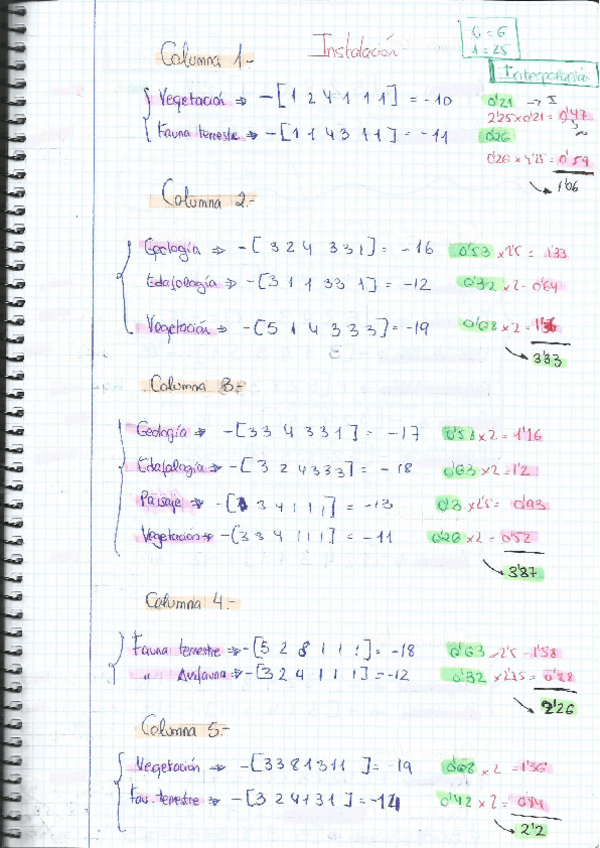 Columna 1.-
Instalación
6 = 6
1 = 25
Vegetación ⇒ -[1 2 4 1 1 1] = -10
0'21 → I
2'25x0'21 = 0'47
Fauna terrestre ⇒ -[1 1 4 3 1 1] = -11
0'26
0'26 x 2'25 = 0'59
1'06
Columna 2.-
Geología ⇒ -[3 2 4 3 3 1] = -16 0'53 x2'5 = 1'33
Edafología ⇒ -[3 1 1 3 3 1] = -12 0'32 x 2 - 0'64
Vegetación ⇒ -[5 1 4 3 3 3] = -19 0'68 x 2 =
3'33
Columna 3.-
Geología ⇒ -[3 3 4 3 3 1] = -17 0'58 x 2 = 1'16
Edafología ⇒ -[3 2 4 3 3 3] = -18 0'63 x 2 = 1'2
Paisaje ⇒ -[ 3 4 1 1 1] = -13 0'3 x2'5 = 0'93
Vegetación ⇒ -[3 3 4 1 1 1] = -11 0'26 x 2 = 0'52
3'87
Columna 4.-
Fauna terrestre ⇒ -[5 2 8 1 1 1] = -18 0'63 x2'5 = 1'58
" Avifauna ⇒ -[3 2 4 1 1 1] = -12 0'32 x2'25 = 0'88
2'26
Columna 5.-
Vegetación ⇒ -[3 3 8 1 3 1 1] = -19 0'68 x 2 = 1'36
Fau. terrestre ⇒ -[3 2 4 1 3 1] = -14 0'42 x 2 = 0'84
2'2